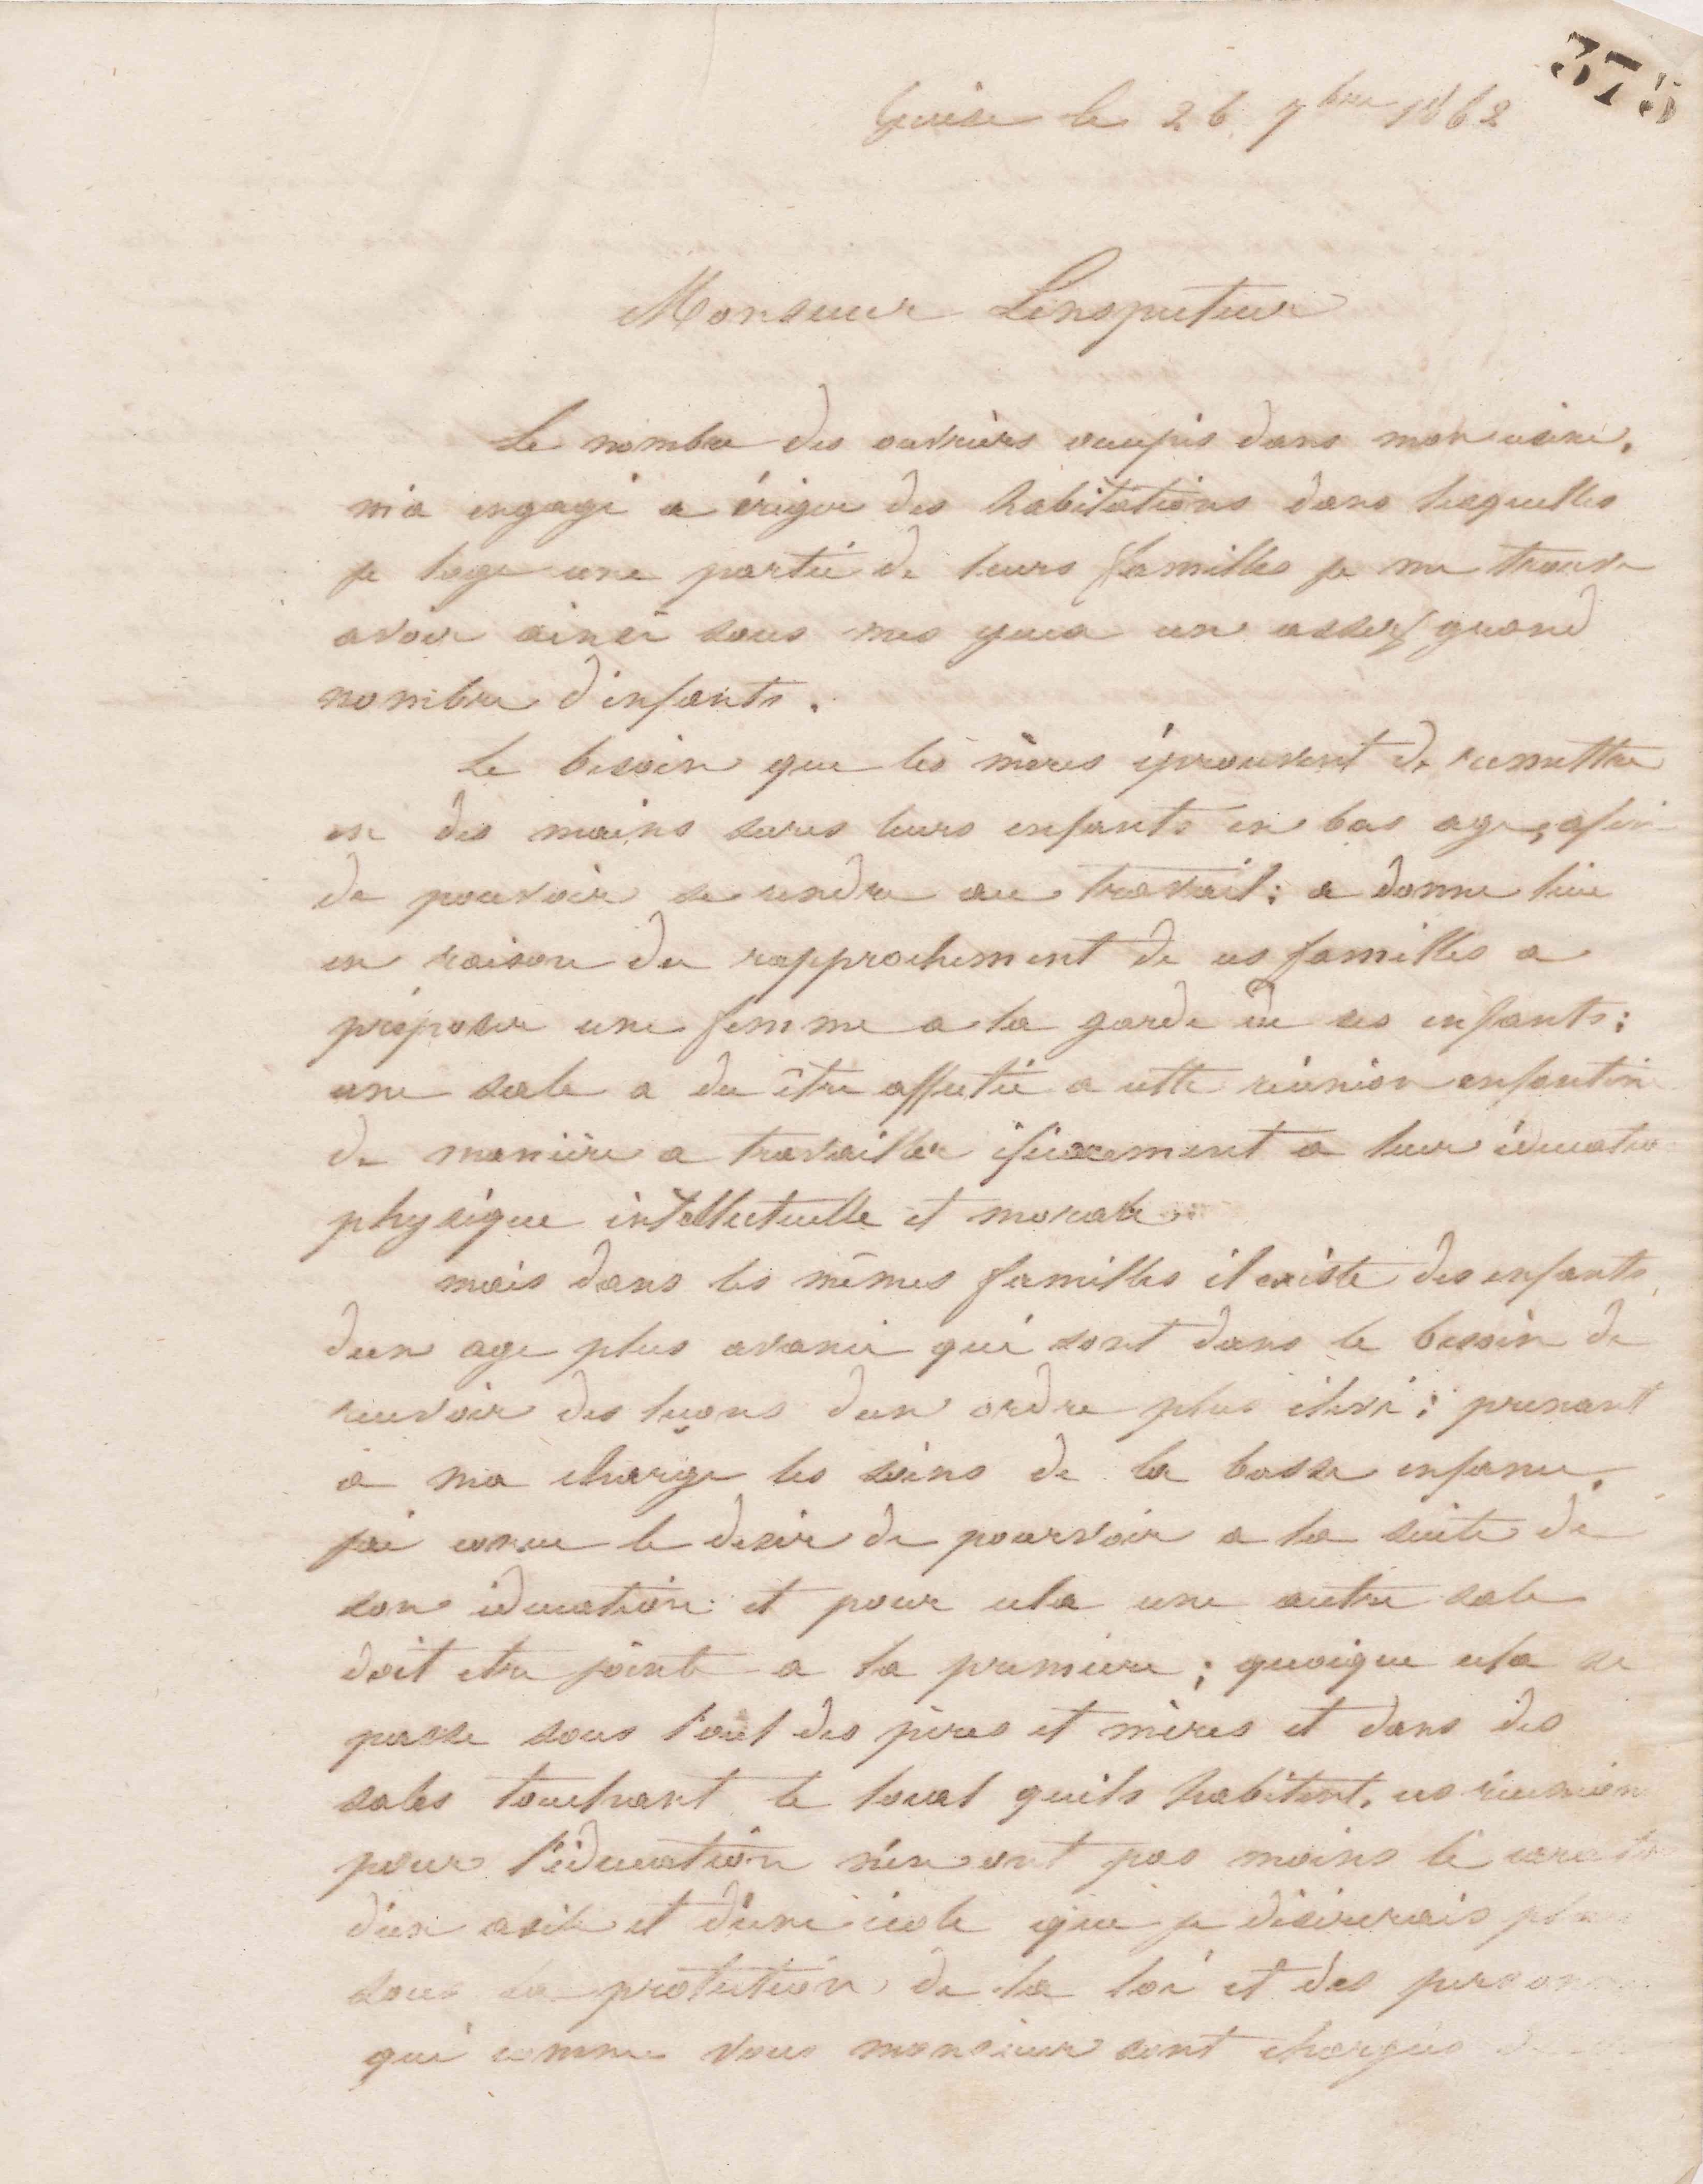 375
Guise le 26 7bre 1862
Monsieur Linspecteur
Le nombre des ouvriers occupés dans mon usine,
m'a engagé a ériger des habitations dans lesquelles
je loge une partie de leurs familles je me trouve
avoir ainsi sous mes yeux un assez grand
nombre d'enfants.
Le besoin que les mères éprouvent de remettre
en des mains sures leurs enfants en bas age, afin
de pouvoir se rendre au travail; a donne lieu
en raison du rapprochement de ces familles a
préposer une femme a la garde de ses enfants;
une sale a du être affectée a cette réunion enfantine
de manière a travailler éficacement a leur éducation
physique intellectuelle et morale
mais dans les mêmes familles il existe des enfants
dun age plus avancé qui sont dans le besoin de
recevoir des leçons dun ordre plus élevé; prenant
a ma charge les soins de la basse enfance,
jai concu le desir de pourvoir a la suite de
son éducation et pour cela une autre sale
doit etre jointe a la premiere; quoique cela se
passe sous l'œil des pères et mères et dans des
sales touchant le local quils habitent, ces réunions
pour l'éducation n'en ont pas moins le caractère
d'un asile et d'une école que je désirerais
sous la protection de la loi et des personnes
qui comme vous monsieur sont chargées